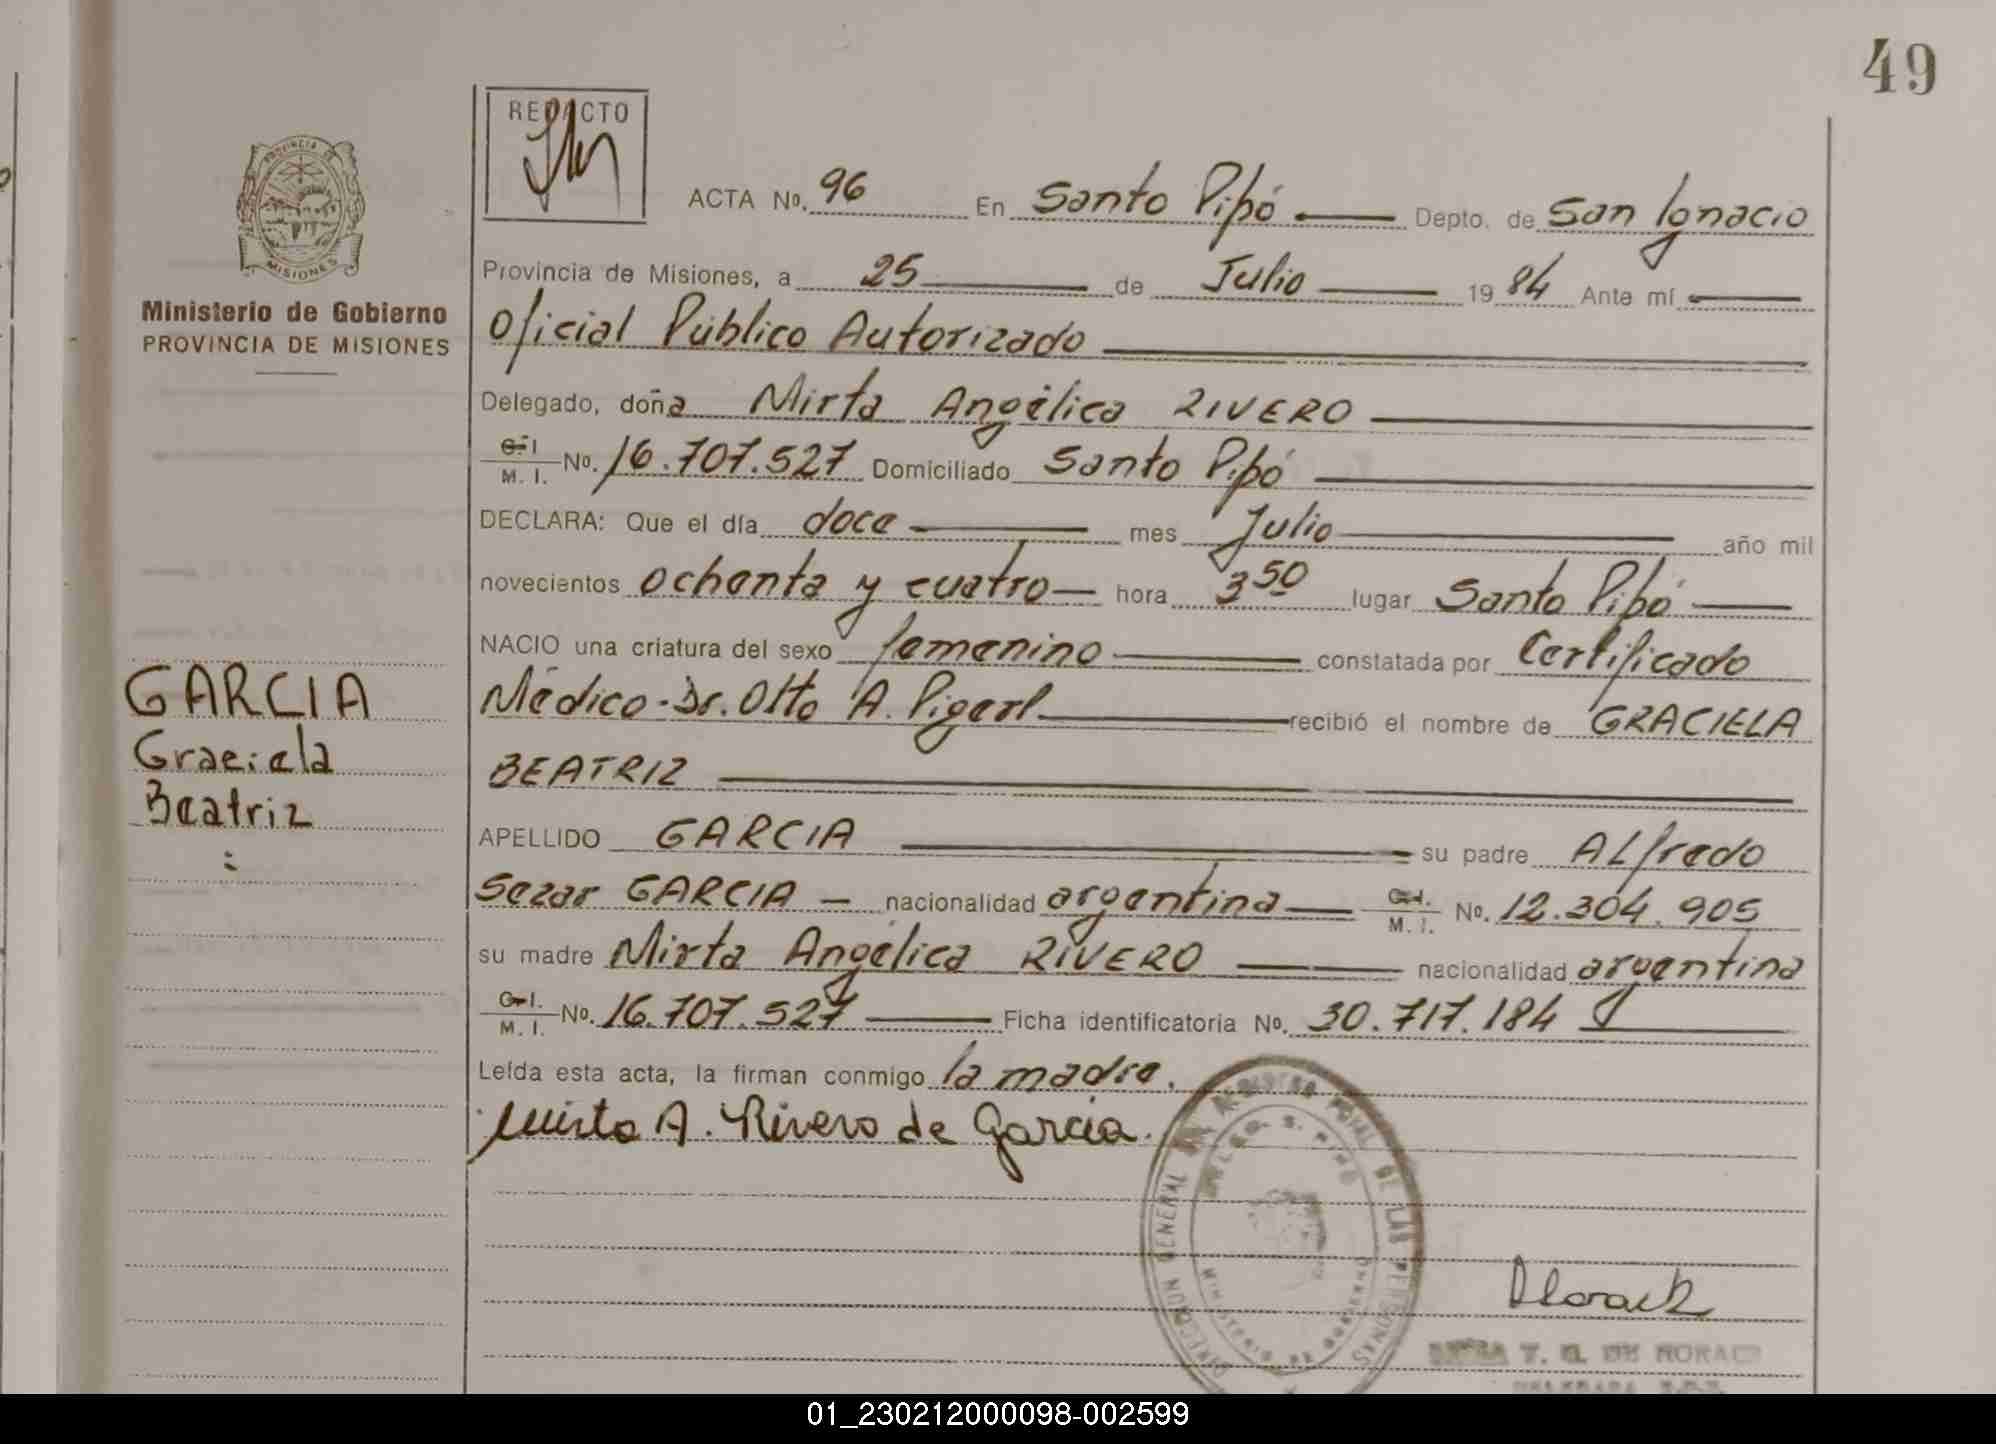 49
REDACTO
ACTA No. 96 En Santo Pipó Depto. de San Ignacio
PROVINCIA DE
MISIONES
Ministerio de Gobierno
PROVINCIA DE MISIONES
Provincia de Misiones, a 25 de Julio 1984 Ante mí
Oficial Público Autorizado
Delegado, doña Mirta Angélica RIVERO
C. I. M. I. No. 16.707.527 Domiciliado Santo Pipó
DECLARA: Que el día doce mes Julio año mil
novecientos ochenta y cuatro hora 3 50 lugar Santo Pipó
NACIO una criatura del sexo femenino constatada por Certificado
Médico - Dr. Otto A. Pigerl recibió el nombre de GRACIELA
BEATRIZ
GARCIA
Graciela
Beatriz
APELLIDO GARCIA su padre ALfredo
Sezar GARCIA — nacionalidad argentina C. I. M. I. No. 12.304.905
su madre Mirta Angélica RIVERO nacionalidad argentina
C. I. M. I. No. 16.707.527 Ficha identificatoria No. 30.717.184
Leída esta acta, la firman conmigo la madre.
Mirta A. Rivero de Garcia.
DIRECCION GENERAL DEL REGISTRO PCIAL DE LAS PERSONAS
MINISTERIO DE GOBIERNO
T. G. DE HORACK
01_230212000098-002599